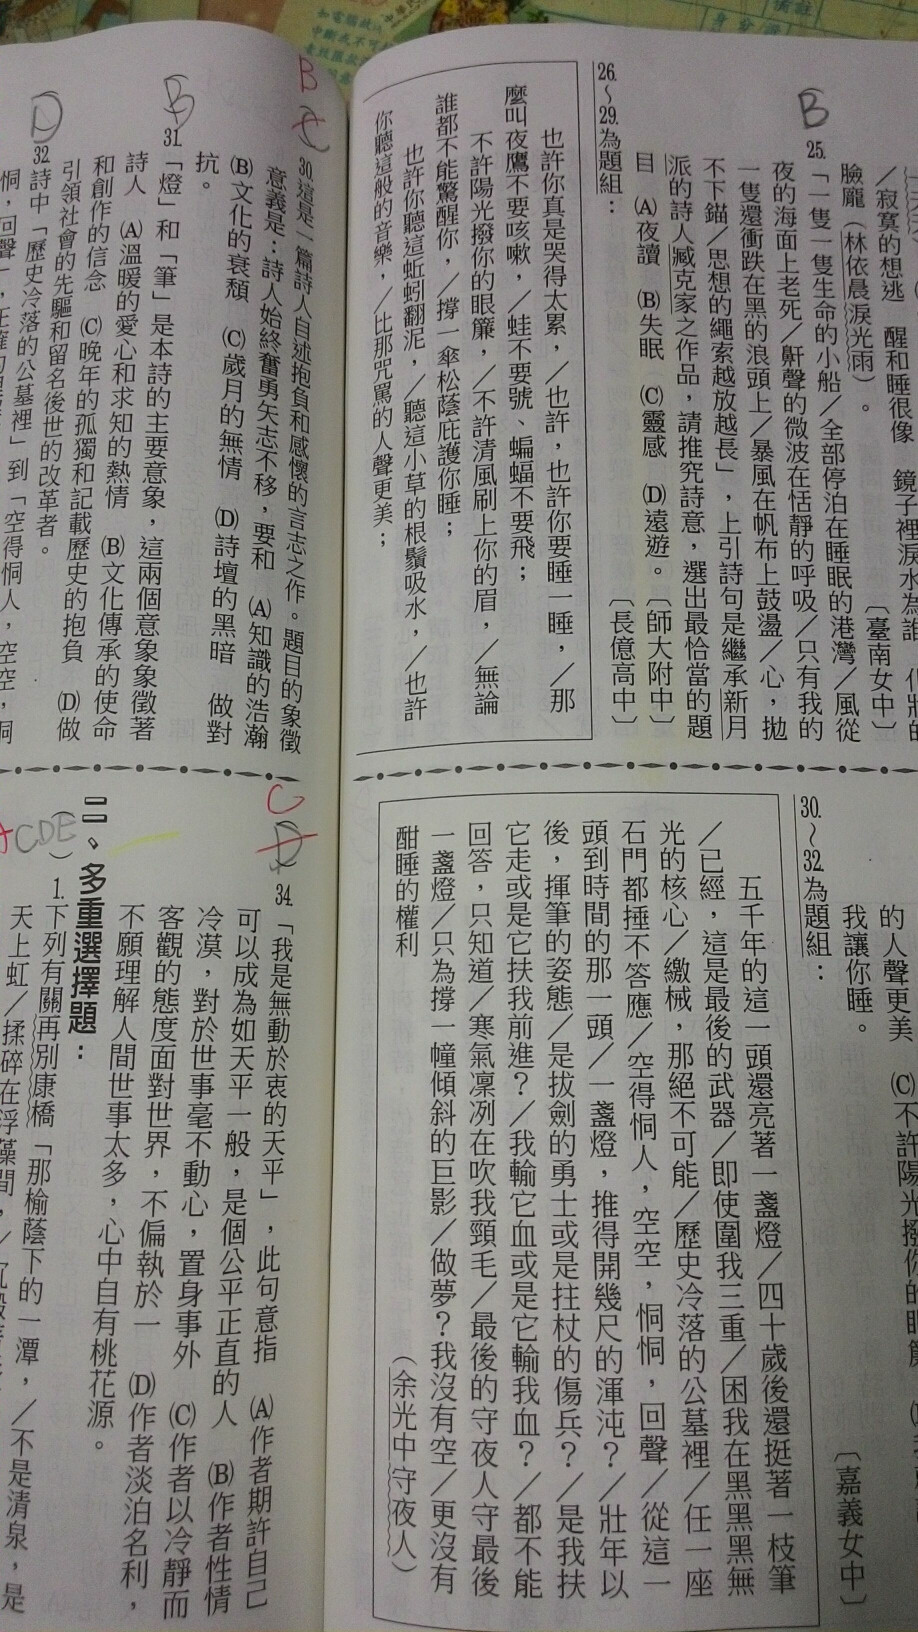 臉龐（林依晨淚光雨）。
〔臺南女中〕
B
25.「一隻一隻生命的小船／全部停泊在睡眠的港灣／風從
夜的海面上老死／鼾聲的微波在恬靜的呼吸／只有我的
一隻還衝跌在黑的浪頭上／暴風在帆布上鼓盪／心，拋
不下錨／思想的繩索越放越長」，上引詩句是繼承新月
派的詩人臧克家之作品，請推究詩意，選出最恰當的題
目 (A)夜讀 (B)失眠 (C)靈感 (D)遠遊。〔師大附中〕
〔長億高中〕
26.～29.為題組：
也許你真是哭得太累，／也許，也許你要睡一睡，／那
麼叫夜鷹不要咳嗽，／蛙不要號、蝙蝠不要飛；
不許陽光撥你的眼簾，／不許清風刷上你的眉，／無論
誰都不能驚醒你，／撐一傘松蔭庇護你睡；
也許你聽這蚯蚓翻泥，／聽這小草的根鬚吸水，／也許
你聽這般的音樂，／比那咒罵的人聲更美；
的人聲更美 (C)不許陽光撥你的眼簾
我讓你睡。
〔嘉義女中〕
30.～32.為題組：
五千年的這一頭還亮著一盞燈／四十歲後還挺著一枝筆
／已經，這是最後的武器／即使圍我三重／困我在黑黑黑無
光的核心／繳械，那絕不可能／歷史冷落的公墓裡／任一座
石門都捶不答應／空得恫人，空空，恫恫，回聲／從這一
頭到時間的那一頭／一盞燈，推得開幾尺的渾沌？／壯年以
後，揮筆的姿態／是拔劍的勇士或是拄杖的傷兵？／是我扶
它走或是它扶我前進？／我輸它血或是它輸我血？／都不能
回答，只知道／寒氣凜冽在吹我頸毛／最後的守夜人守最後
一盞燈／只為撐一幢傾斜的巨影／做夢？我沒有空／更沒有
酣睡的權利
（余光中守夜人）
B
C
30.這是一篇詩人自述抱負和感懷的言志之作。題目的象徵
意義是：詩人始終奮勇矢志不移，要和 (A)知識的浩瀚
(B)文化的衰頹 (C)歲月的無情 (D)詩壇的黑暗 做對
抗。
B
31.「燈」和「筆」是本詩的主要意象，這兩個意象象徵著
詩人 (A)溫暖的愛心和求知的熱情 (B)文化傳承的使命
和創作的信念 (C)晚年的孤獨和記載歷史的抱負 (D)做
引領社會的先驅和留名後世的改革者。
D
32.詩中「歷史冷落的公墓裡」到「空得恫人，空空，恫
C
D
34.「我是無動於衷的天平」，此句意指 (A)作者期許自己
可以成為如天平一般，是個公平正直的人 (B)作者性情
冷漠，對於世事毫不動心，置身事外 (C)作者以冷靜而
客觀的態度面對世界，不偏執於一 (D)作者淡泊名利，
不願理解人間世事太多，心中自有桃花源。
二、多重選擇題：
ACDE
1.下列有關再別康橋「那榆蔭下的一潭，／不是清泉，是
天上虹／揉碎在浮藻間，／